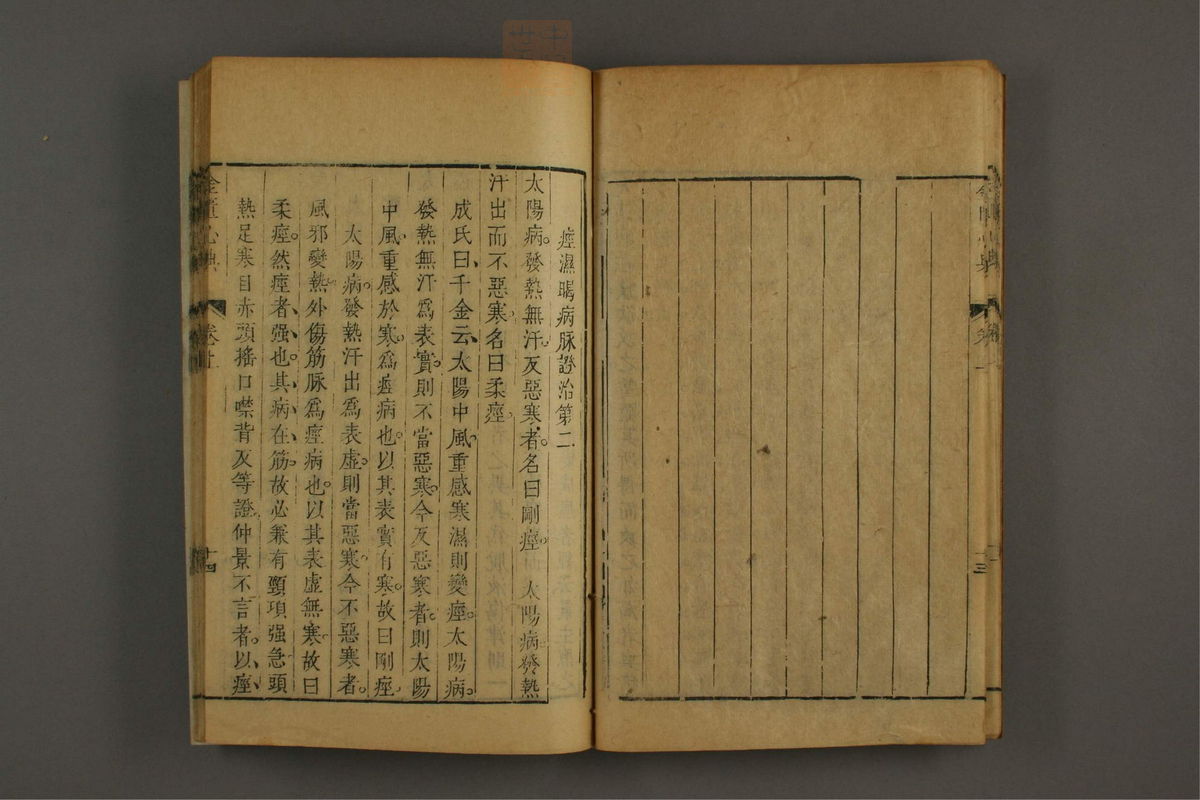 痙濕暍病脉證治第二
太陽病。發熱無汗。反惡寒者。名曰剛痙。太陽病。發熱
汗出而不惡寒。名曰柔痙。
成氏曰、千金云、太陽中風、重感寒濕則變痙。太陽病。
發熱無汗爲表實。則不當惡寒。今反惡寒者。則太陽
中風、重感於寒。爲痙病也。以其表實有寒。故曰剛痙。
太陽病。發熱汗出爲表虛。則當惡寒。今不惡寒者。
風邪變熱。外傷筋脉爲痙病也。以其表虛無寒。故曰
柔痙。然痙者、强也。其病在筋。故必兼有頸項强急。頭
熱足寒目赤頭搖口噤背反等證。仲景不言者。以痙
金匱心典
卷上
十四
十三